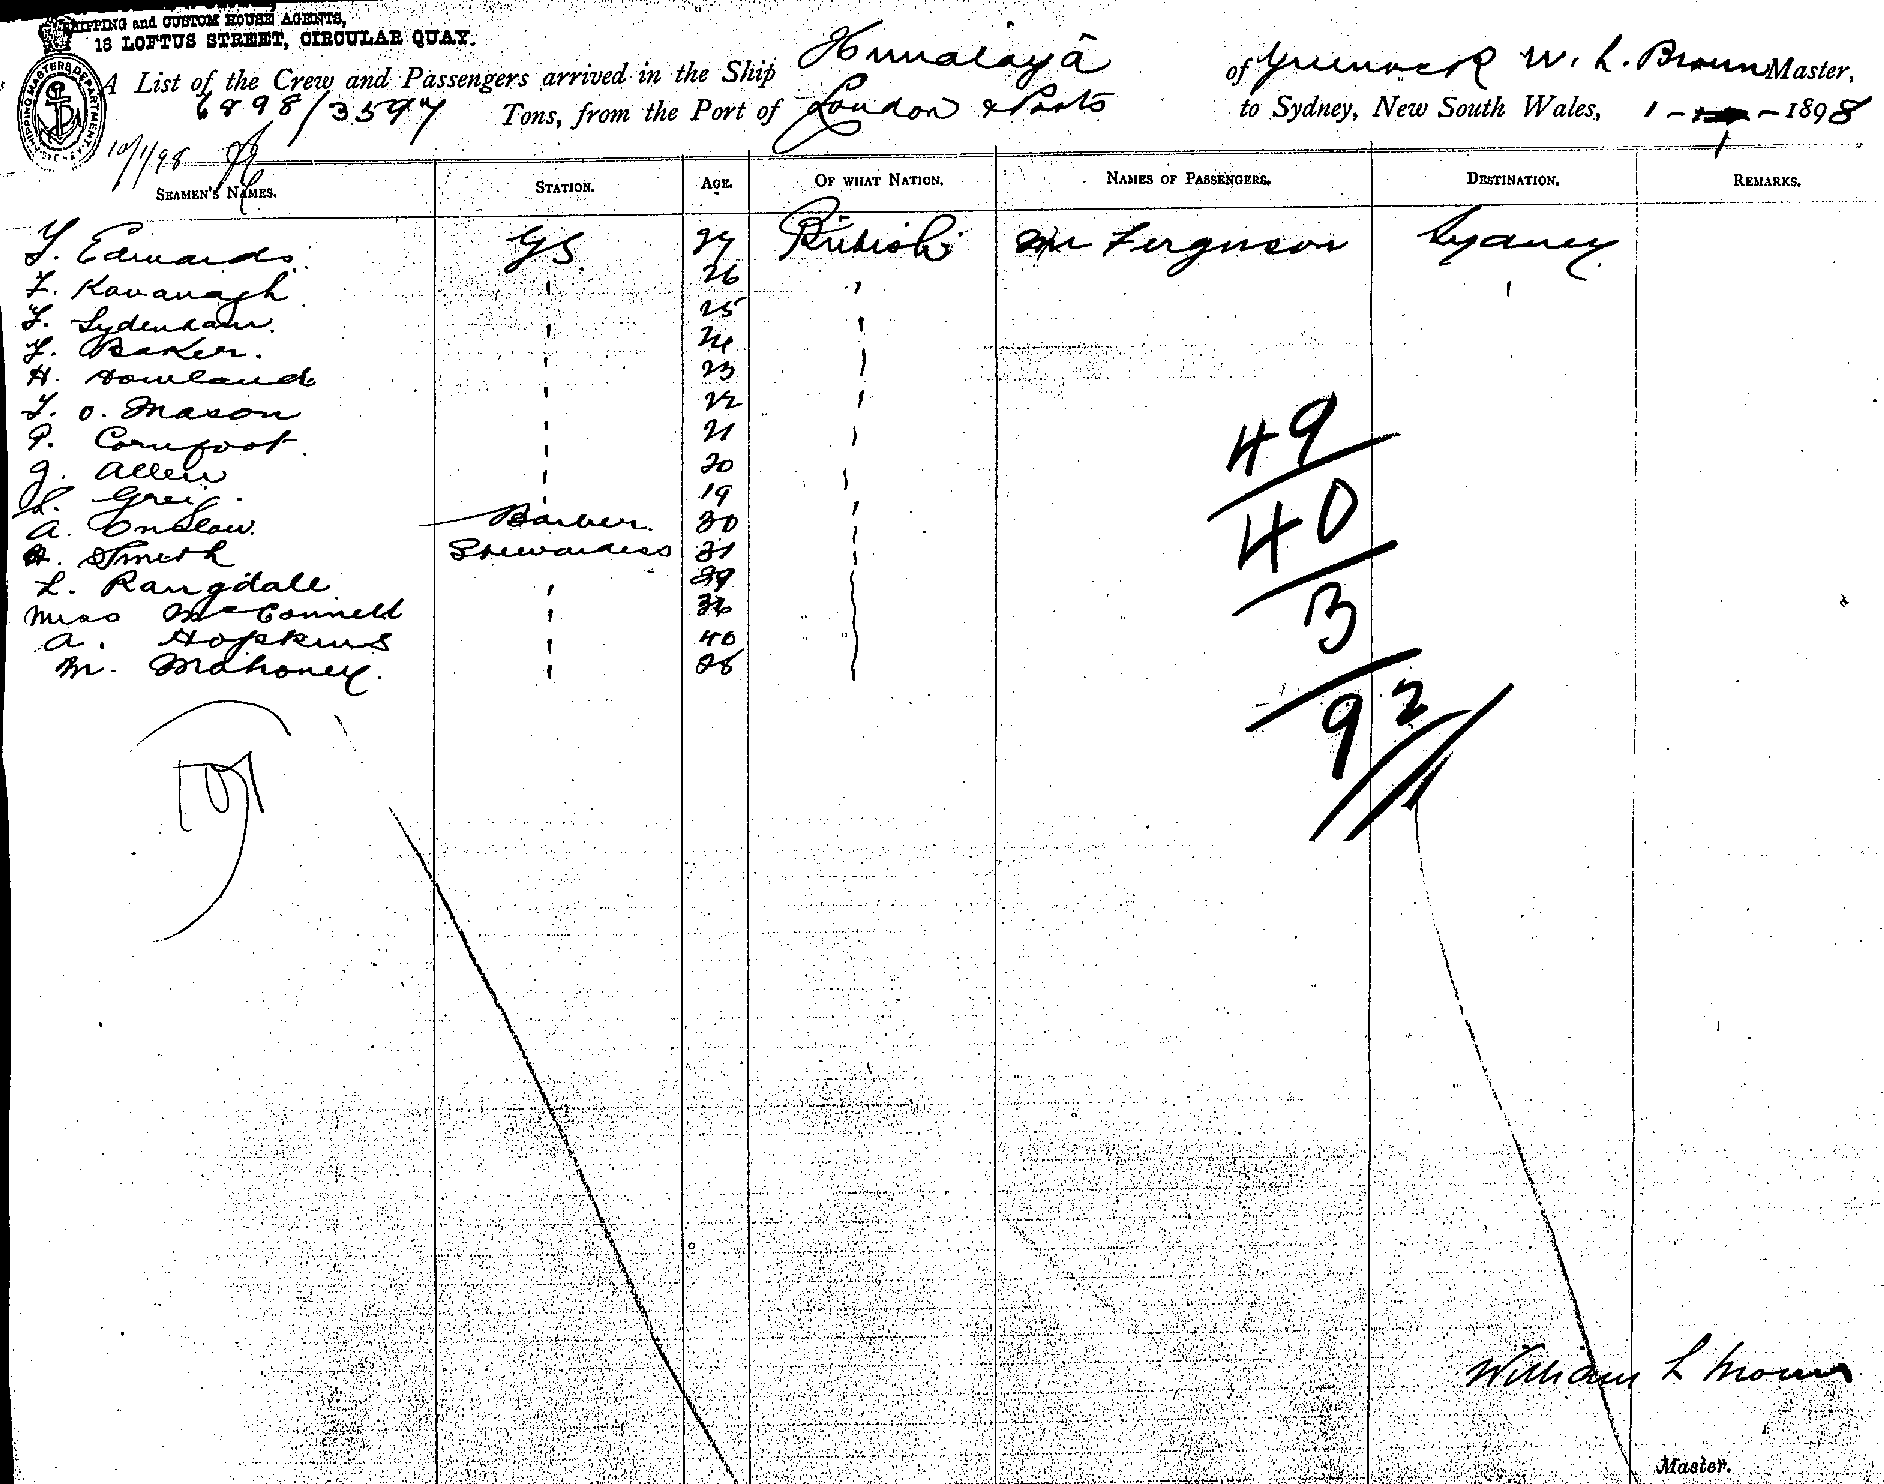 SHIPPING and CUSTOM HOUSE AGENTS,
18 LOFTUS STREET, CIRCULAR QUAY.
A List of the Crew and Passengers arrived in the Ship Himalaya of Greenock W. L. Broun Master,
6898/3597 Tons, from the Port of London & Ports to Sydney, New South Wales, 1 - 1 - 1898
SHIPPING MASTERS DEPARTMENT
10/1/98
SEAMEN'S NAMES. STATION. AGE. OF WHAT NATION. NAMES OF PASSENGERS. DESTINATION. REMARKS.
F. Edwards. GS. 27 British Mr Ferguson Sydney
F. Kavanagh. " 26 "
F. Sydenham. " 25 "
F. Baker. " 24 "
H. Howland " 23 "
F. O. Mason " 22 "
P. Cornfoot. " 21 "
G. Allen " 20 "
L. Grei . " 19 "
A. Onslow. Barber. 30 "
A. Smith Stewardess 31 "
L. Rangdale " 39 "
Miss McConnell " 36 "
A. Hopkins " 40 "
M. Mahoney. " 28 "
49
40
3
92
107
William L Broun
Master.